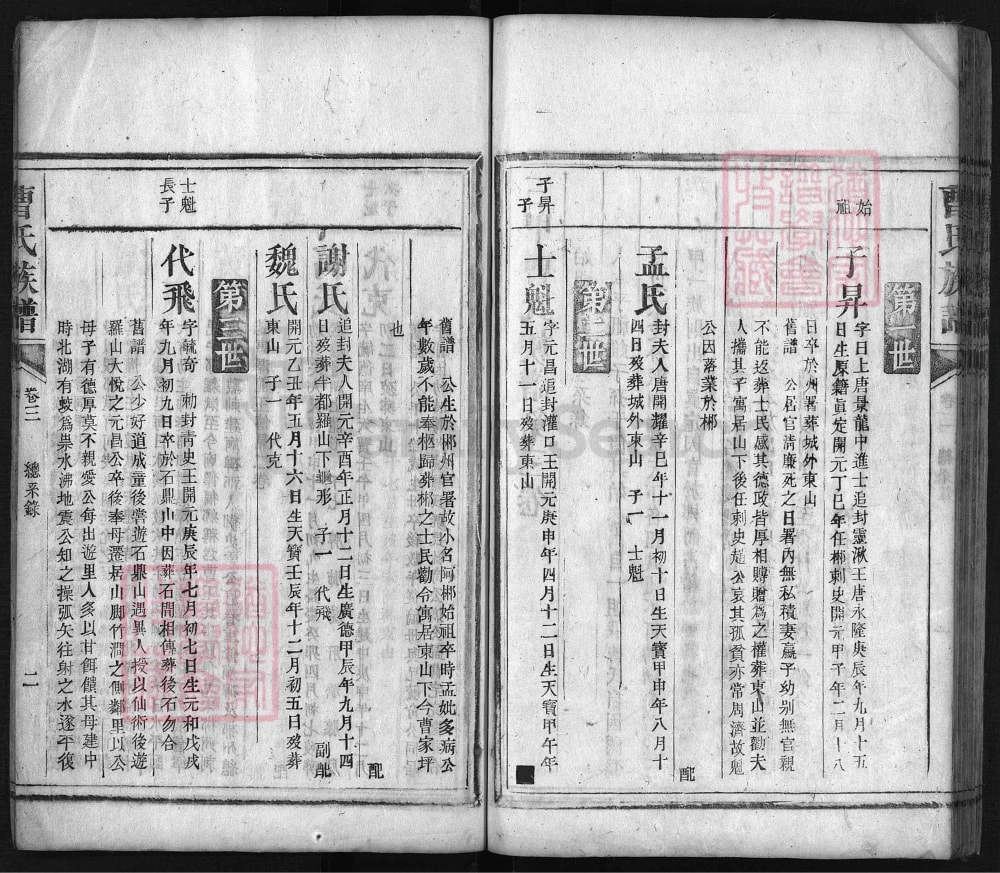 曹氏族譜
第一世
始祖
子昇
字日上唐景龍中進士追封靈湫王唐永隆庚辰年九月十五
日生原籍眞定開元丁巳年任郴刺史開元甲子年二月十八
日卒於州署葬城外東山
舊譜 公居官清廉死之日署內無私積妻嬴子幼别無官親
不能返葬士民感其德政皆厚相賻贈爲之權葬東山並勸夫
人攜其子寓居山下後任刺史趙公哀其孤貧亦常周濟故魁
公因落業於郴
配
孟氏
封夫人唐開耀辛巳年十一月初十日生天寶甲申年八月十
四日歿葬城外東山 子一 士魁
第二世
子昇子
士魁
字元昌追封灌口王開元庚申年四月十二日生天寶甲午年
五月十一日歿葬東山
舊譜 公生於郴州官署故小名阿郴始祖卒時孟妣多病公
年數歲不能奉柩歸葬郴之士民勸令寓居東山下今曹家坪
也
配
謝氏
追封夫人開元辛酉年正月十二日生廣德甲辰年九月十四
日歿葬半都羅山下龜形 子一 代飛
副配
魏氏
開元乙丑年五月十六日生天寶壬辰年十二月初五日歿葬
東山 子一 代克
第三世
士魁長子
代飛
字毓奇 勅封青史王開元庚辰年七月初七日生元和戊戌
年九月初九日卒於石鼎山中因葬石間相傳葬後石勿合
舊譜 公少好道成童後嘗遊石鼎山遇異人授以仙術後遊
羅山大悅之元昌公卒後奉母遷居山脚竹澗之側鄰里以公
母子有德厚莫不親愛公每出遊里人多以甘餌饋其母建中
時北湖有蛟爲祟水沸地震公知之操弧矢往射之水遂平復
曹氏族譜
卷二
總系錄
二
FamilySearch